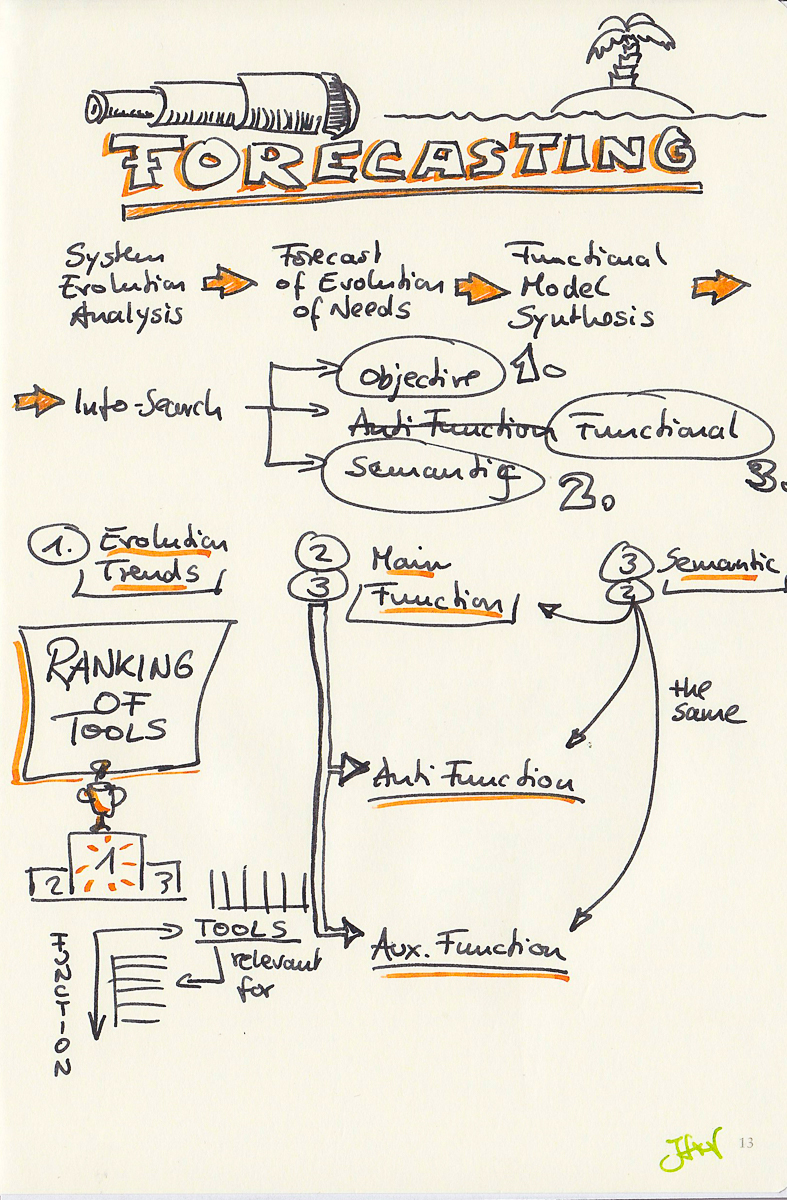 FORECASTING
System
Evolution
Analysis
Forecast
of Evolution
of Needs
Functional
Model
Synthesis
Info-Search
Objective
1.
Anti Function
Functional
3.
Semantic
2.
1. Evolution
Trends
2 Main
3 Function
3 Semantic
2
the
same
RANKING
OF
TOOLS
Anti Function
1
2
3
TOOLS
relevant
for
FUNCTION
Aux. Function
13